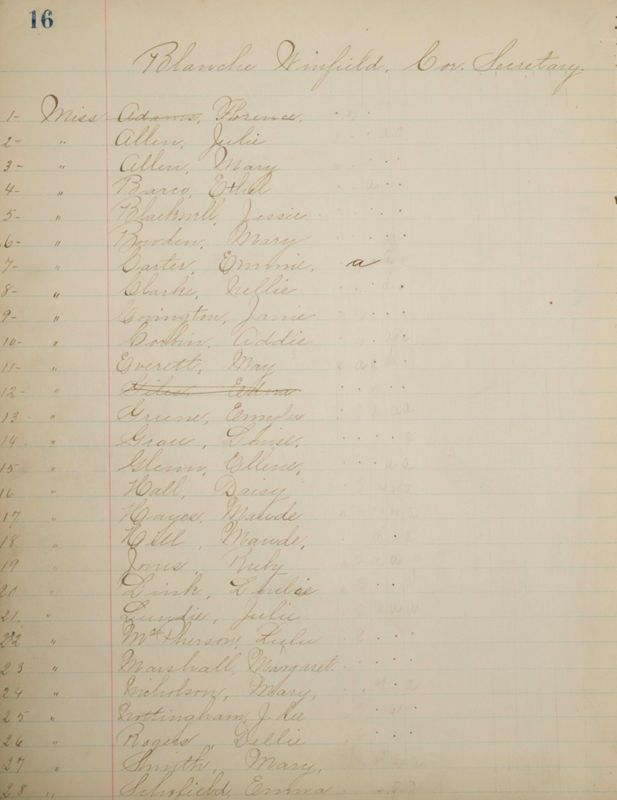 16
Blanche Winfield. Cor. Secretary.
1- Miss Adams, Florence.
2- " Allen, Julie
3- " Allen, Mary
4- " Barco, Ethel
5- " Blackwell, Jessie
6- " Bowden, Mary
7- " Carter, Emmie, a
8- " Clarke, Nellie
9- " Covington, Janie
10- " Corbin, Addie
11- " Everett, May
12- " Giles, Edna
13- " Greene,
14 " Grace, Louise,
15 " Glenn, Ellene,
16 " Hall, Daisy
17 " Hayes, Maude
18 " Hill, Maude,
19 " Jones, Ruby
20 " Link,
21. " Lundie, Julie
22 " McPherson, Lulu
23 " Marshall, Margaret.
24 " Nicholson, Mary,
25 " Nottingham,
26 " Rogers, Dellie
27 " Smyth, Mary,
28 " Schofield, Emma